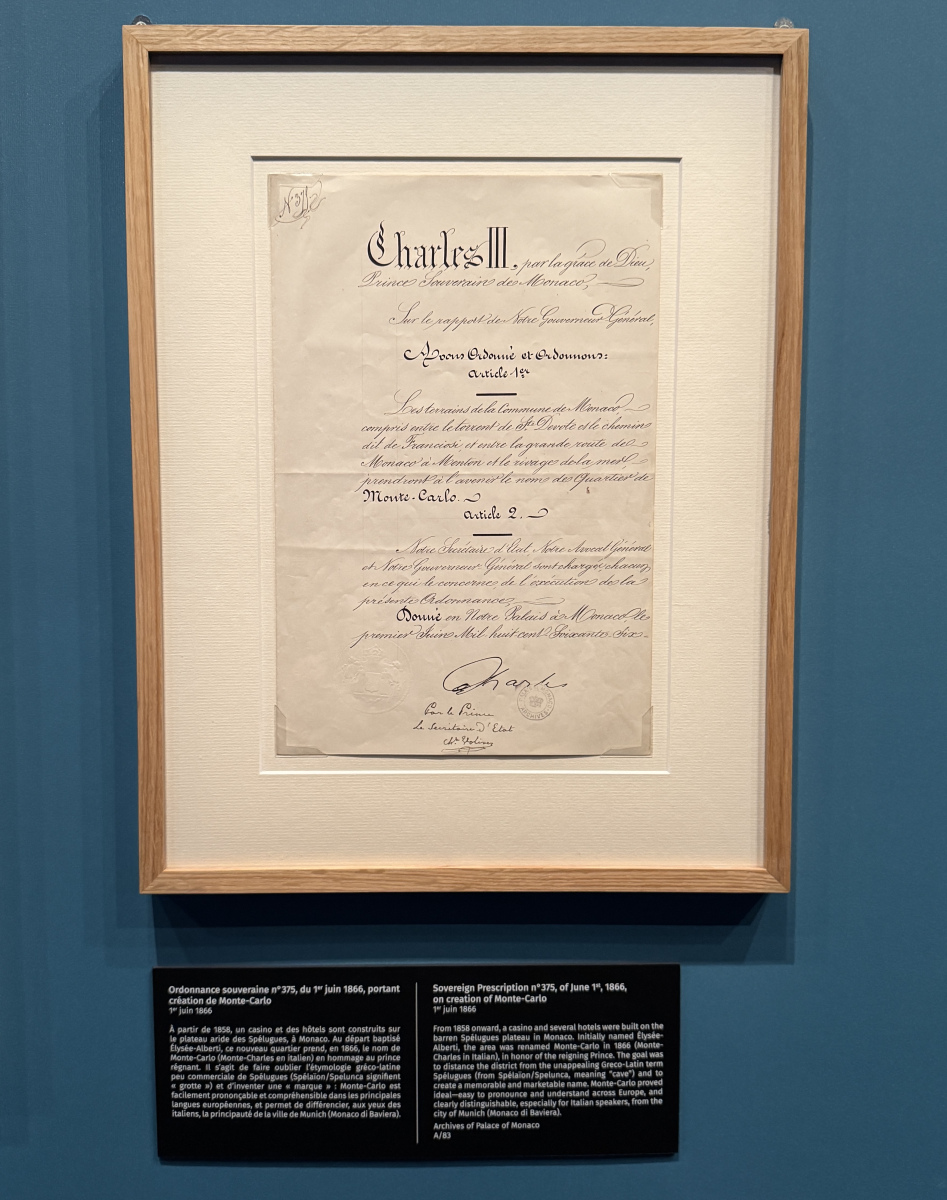 N° 375
Charles III, par la grâce de Dieu,
Prince Souverain de Monaco,
Sur le rapport de Notre Gouverneur Général,
Avons Ordonné et Ordonnons:
Article 1er
Les terrains de la Commune de Monaco
compris entre le torrent de Ste Dévote et le chemin
dit de Franciosi et entre la grande route de
Monaco à Menton et le rivage de la mer
prendront à l'avenir le nom de Quartier de
Monte-Carlo.
Article 2.
Notre Secrétaire d'Etat, Notre Avocat Général
et Notre Gouverneur Général sont chargés chacun
en ce qui le concerne de l'exécution de la
présente Ordonnance
Donné en Notre Palais à Monaco le
premier Juin Mil huit cent Soixante Six
Charles
ARCHIVES
Par le Prince
Le Secrétaire D'Etat
Ordonnance souveraine n°375, du 1er juin 1866, portant
création de Monte-Carlo
1er juin 1866
À partir de 1858, un casino et des hôtels sont construits sur
le plateau aride des Spélugues, à Monaco. Au départ baptisé
Élysée-Alberti, ce nouveau quartier prend, en 1866, le nom de
Monte-Carlo (Monte-Charles en italien) en hommage au prince
régnant. Il s'agit de faire oublier l'étymologie gréco-latine
peu commerciale de Spélugues (Spélaïon/Spelunca signifient
« grotte ») et d'inventer une « marque » : Monte-Carlo est
facilement prononçable et compréhensible dans les principales
langues européennes, et permet de différencier, aux yeux des
italiens, la principauté de la ville de Munich (Monaco di Baviera).
Sovereign Prescription n°375, of June 1st, 1866,
on creation of Monte-Carlo
1er juin 1866
From 1858 onward, a casino and several hotels were built on the
barren Spélugues plateau in Monaco. Initially named Élysée-
Alberti, the area was renamed Monte-Carlo in 1866 (Monte-
Charles in Italian), in honor of the reigning Prince. The goal was
to distance the district from the unappealing Greco-Latin term
Spélugues (from Spélaïon/Spelunca, meaning "cave") and to
create a memorable and marketable name. Monte-Carlo proved
ideal—easy to pronounce and understand across Europe, and
clearly distinguishable, especially for Italian speakers, from the
city of Munich (Monaco di Baviera).
Archives of Palace of Monaco
A/83